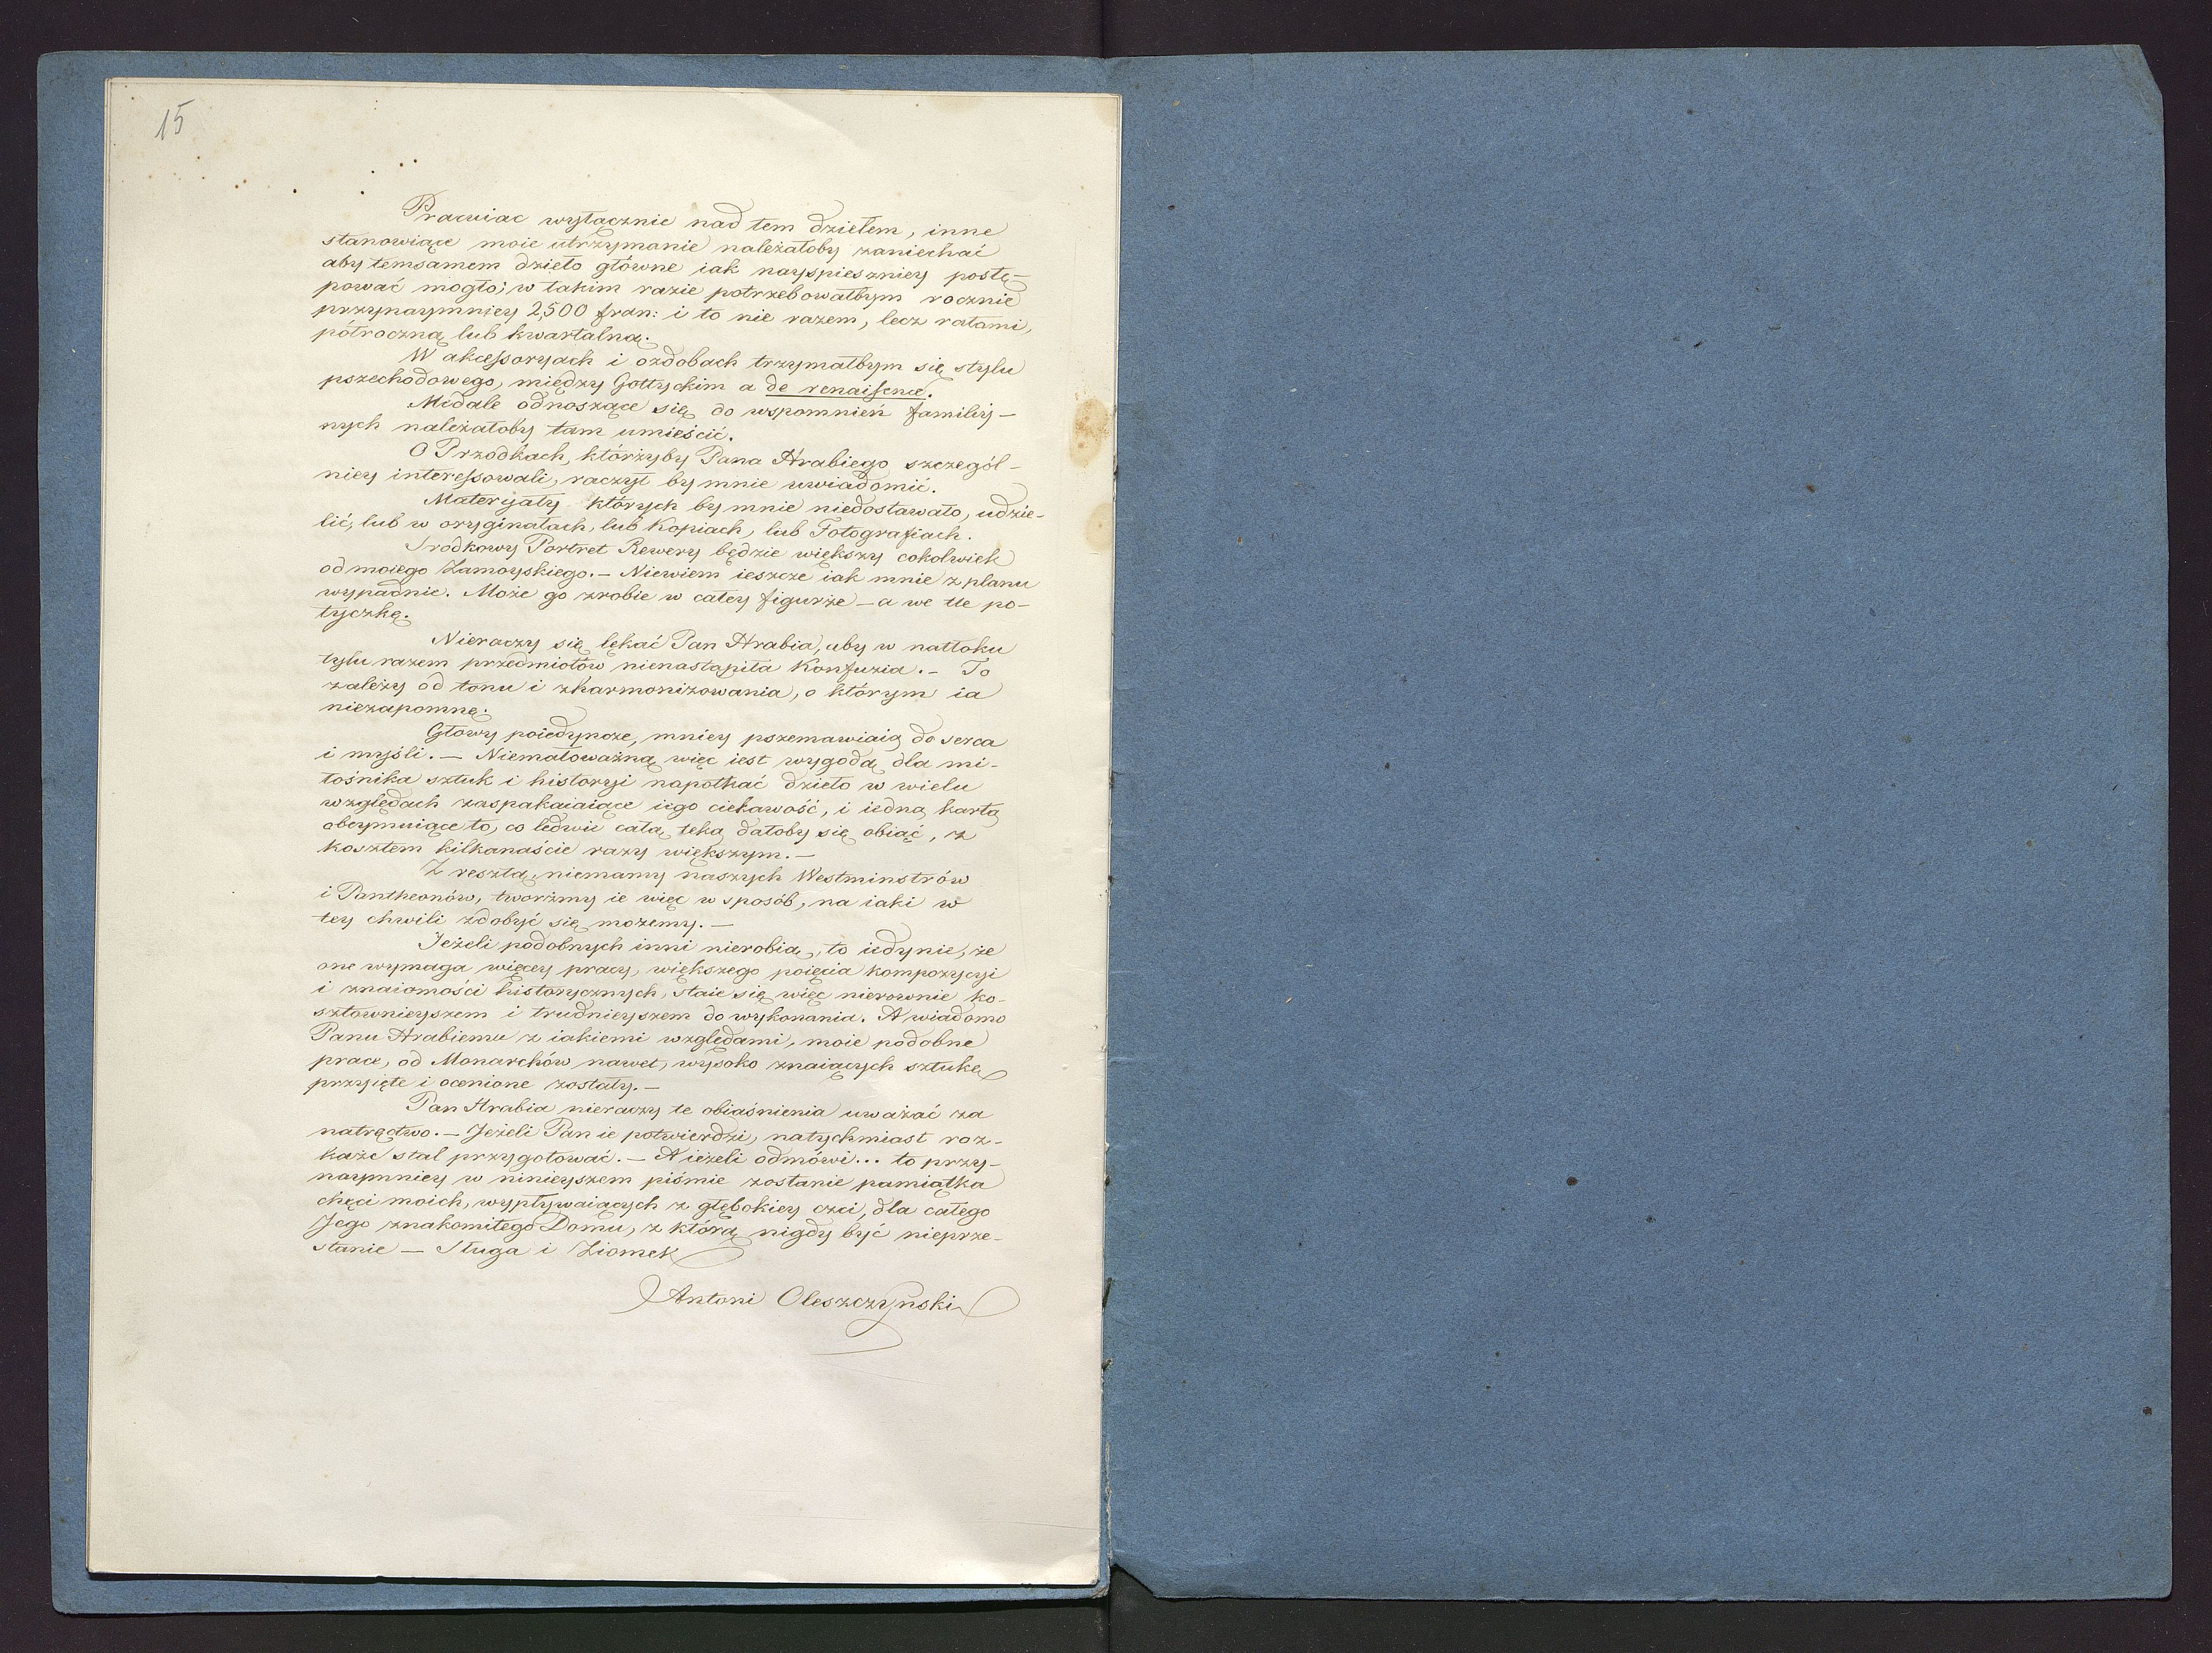 15
Pracuiac wyłącznie nad tem dziełem, inne
stanowiące moie utrzymanie należałoby zaniechać
aby temsamem dzieło główne iak nayspieszniey postę-
pować mogło; w takim razie potrzebowałbym rocznie
przynaymniey 2,500 fran: i to nie razem, lecz ratami,
półroczną lub kwartalną.
W akcessoryach i ozdobach trzymałbym się stylu
pszechodowego, między Gottyckim a de renaissence.
Medale odnoszące się do wspomnień familiy-
nych należałoby tam umieścić.
O Przodkach, którzyby Pana Hrabiego szczegól-
niey interessowali, raczył by mnie uwiadomić.
Materyały których by mnie niedostawało, udzie-
lić, lub w oryginałach, lub Kopiach, lub Fotografiach.
Srodkowy Portret Rewery będzie większy cokolwiek
od moiego Zamoyskiego. — Niewiem ieszcze iak mnie z planu
wypadnie. Może go zrobie w całey figurze — a we tle po-
tyczkę.
Nieraczy się lękać Pan Hrabia, aby w natłoku
tylu razem przedmiotów nienastąpiła Konfuzia. — To
zależy od tonu i zharmonizowania, o którym ia
niezapomnę.
Głowy poiedyncze, mniey pszemawiaią do serca
i myśli. — Niemałoważną więc iest wygodą dla mi-
łośnika sztuk i historyi napotkać dzieło w wielu
względach zaspakaiaiące iego ciekawość, i iedną kartą
obeymuiące to, co ledwie całą teką dałoby się obiąć, z
kosztem kilkanaście razy większym. —
Z resztą, niemamy naszych Westminstrów
i Pantheonów, tworżmy ie więc w sposób, na iaki w
tey chwili zdobyć się możemy. —
Jeżeli podobnych inni nierobią, to iedynie, że
one wymaga więcey pracy, większego poięcia kompozycyi
i znaiomości historycznych, staie się więc nierownie ko-
sztownieyszem i trudnieyszem do wykonania. A wiadomo
Panu Hrabiemu z iakiemi względami, moie podobne
prace, od Monarchów nawet, wysoko znaiących sztukę
przyięte i ocenione zostały. —
Pan Hrabia nieraczy te obiaśnienia uważać za
natręctwo. — Jeżeli Pan ie potwierdzi, natychmiast roz-
każe stal przygotować. — A ieżeli odmówi... to przy-
naymniey w ninieyszem piśmie zostanie pamiątka
chęci moich, wypływaiących z głębokiey czci, dla całego
Jego znakomitego Domu, z którą nigdy być nieprze-
stanie — Sługa i Ziomek
Antoni Oleszczyński